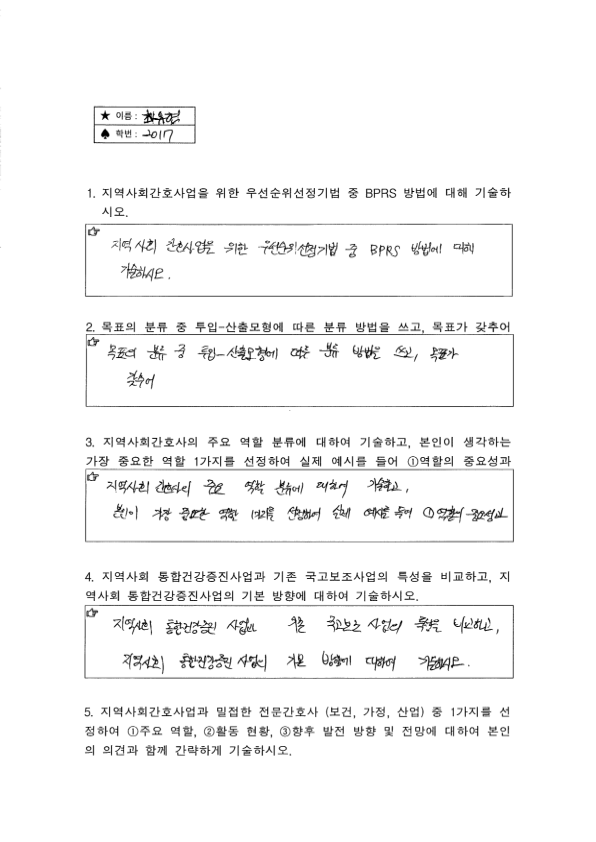 ★ 이름 : 최유현
♠ 학번 : 2017
1. 지역사회간호사업을 위한 우선순위선정기법 중 BPRS 방법에 대해 기술하
시오.
지역사회 간호사업을 위한 우선순위선정기법 중 BPRS 방법에 대해
기술하시오.
2. 목표의 분류 중 투입-산출모형에 따른 분류 방법을 쓰고, 목표가 갖추어
목표의 분류 중 투입-산출모형에 따른 분류 방법을 쓰고, 목표가
갖추어
3. 지역사회간호사의 주요 역할 분류에 대하여 기술하고, 본인이 생각하는
가장 중요한 역할 1가지를 선정하여 실제 예시를 들어 ①역할의 중요성과
지역사회 간호사의 주요 역할 분류에 대하여 기술하고,
본인이 가장 중요한 역할 1가지를 선정하여 실제 예시를 들어 ①역할의 중요성과
4. 지역사회 통합건강증진사업과 기존 국고보조사업의 특성을 비교하고, 지
역사회 통합건강증진사업의 기본 방향에 대하여 기술하시오.
지역사회 통합건강증진 사업과 기존 국고보조 사업의 특성을 비교하고,
지역사회 통합건강증진 사업의 기본 방향에 대하여 기술하시오.
5. 지역사회간호사업과 밀접한 전문간호사 (보건, 가정, 산업) 중 1가지를 선
정하여 ①주요 역할, ②활동 현황, ③향후 발전 방향 및 전망에 대하여 본인
의 의견과 함께 간략하게 기술하시오.